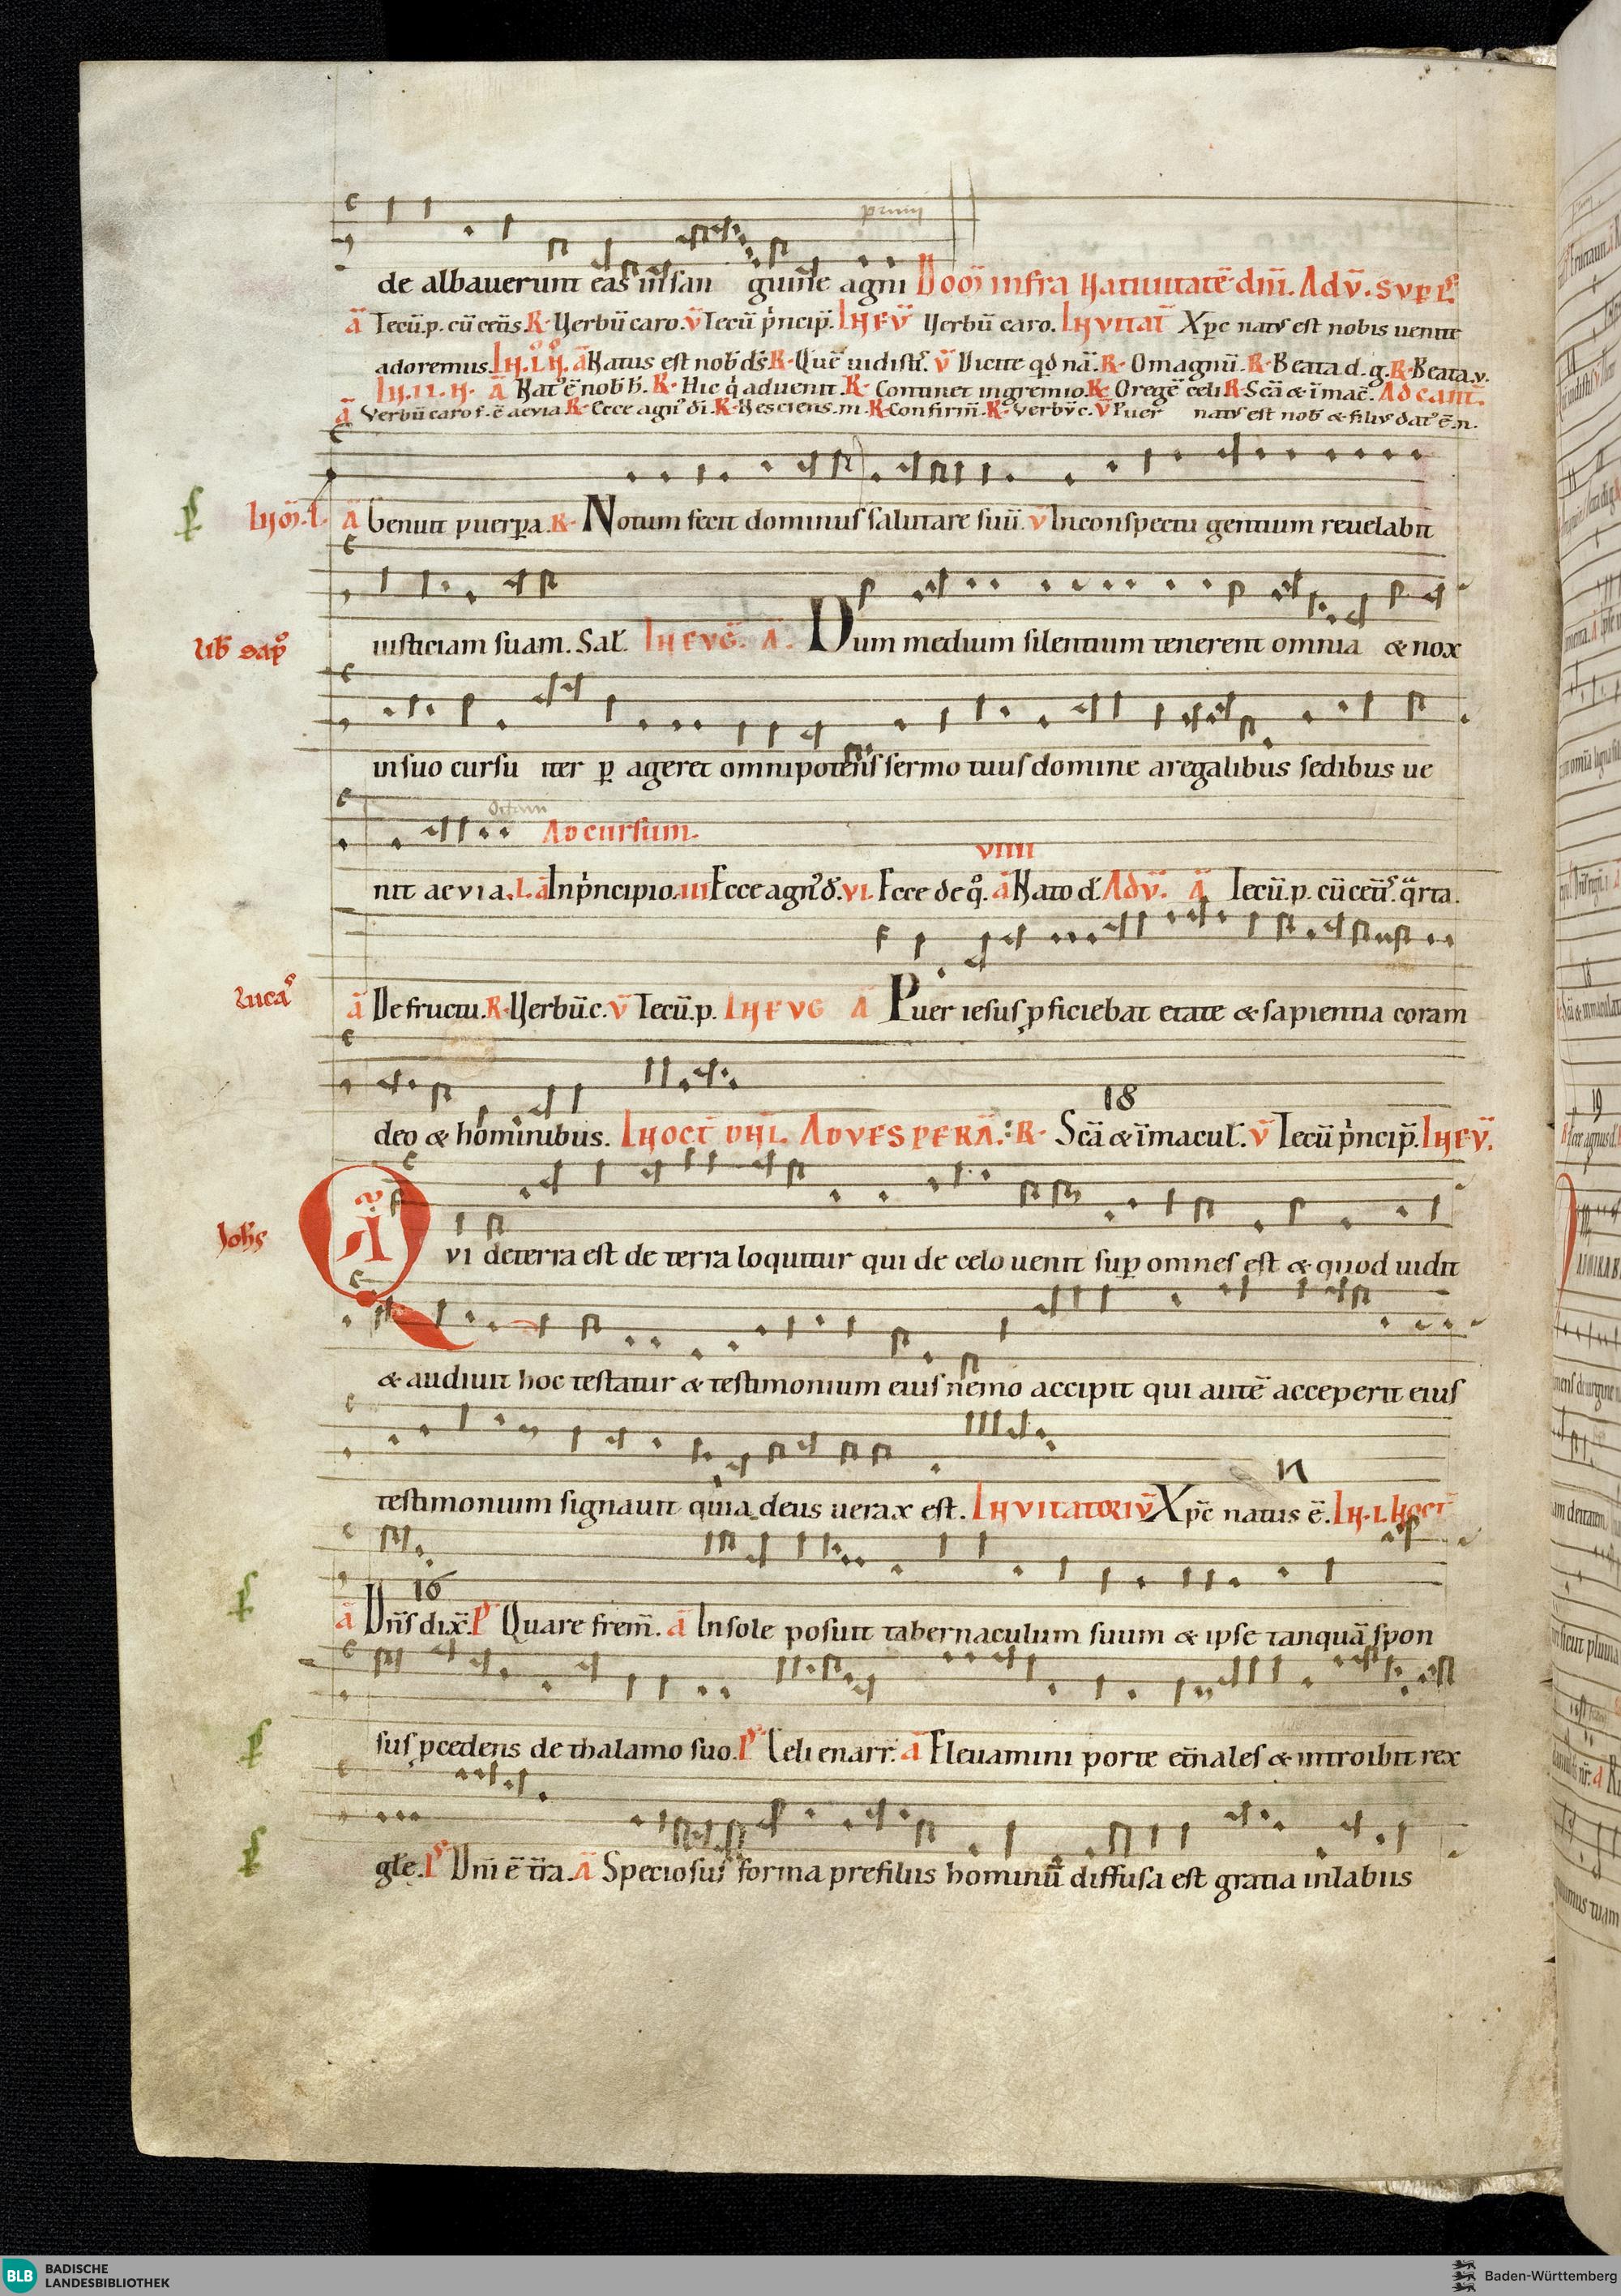 primi
de albauerunt eas in san guine agni Dom̄ infra Natiuitatē dn̄i. Ad v̄. sup̄ ps̄
ā Tecū.p. cū cet̄is. R. Verbū caro. v̄ Tecū p̄ncip̄. In ev̄ Verbū caro. Invitat̄ Xpc natus est nobis uenite
adoremus. In .I. N. ā Natus est nob̄ ds̄ R. Quē uidistis. v̄ Dicite qd nā. R. O magnū. R. Beata d. g. R. Beata. v.
In. II. N. ā Nat' ē nob̄ h. R. Hic q̇ aduenit. R. Continet in gremio. R. O regē celi R. Scā & īmac̄. Ad cant̄.
ā Verbū caro f. ē aevia R. Ecce agn' di. R. Nesciens. m. R. Confirm̄. R. Verbū c. v̄ Puer natus est nob̄ & filius dat' ē. n.
In .III. ā Genuit puerpa. R. Notum fecit dominus salutare suū. v̄ In conspectu gentium reuelabit
Lib̄ sap̄
iusticiam suam. Sal̄. In evḡ. ā. Dum medium silentium tenerent omnia & nox
in suo cursu iter p ageret omnipotens sermo tuus domine a regalibus sedibus ue
Octaui Ad cursum.
VIIII
nit aevia. I. ā In p̄ncipio. III Ecce agn' d̄. VI. Ecce de q̊. ā Nato d̄. Ad v̄. ā Tecū. p. cū cet̄. q̄rta.
Lucas
ā De fructu. R. Verbū c. v̄ Tecū. p. In evg ā Puer iesus pficiebat etate & sapientia coram
18
deo & hominibus. In oct̄ dn̄i. Ad vesperā. R. Scā & īmacul̄. v̄ Tecū p̄ncip̄. In ev̄.
Joh̄s
ā
Qvi de terra est de terra loquitur qui de celo uenit sup omnes est & quod uidit
& audiuit hoc testatur & testimonium eius nemo accipit qui autē acceperit eius
n
testimonium signauit quia deus uerax est. Invitatoriū Xpc̄ natus ē. In. I. Noct̄
16
ā Dn̄s dix̄. Ps̄ Quare frem̄. ā In sole posuit tabernaculum suum & ipse tanquā spon
sus pcedens de thalamo suo. Ps̄ Celi enarr̄. ā Eleuamini porte etn̄ales & introibit rex
gl̄e. Ps̄ Dn̄i ē t̄ra. ā Speciosus forma pre filiis hominū diffusa est gratia in labiis
BLB BADISCHE LANDESBIBLIOTHEK
Baden-Württemberg